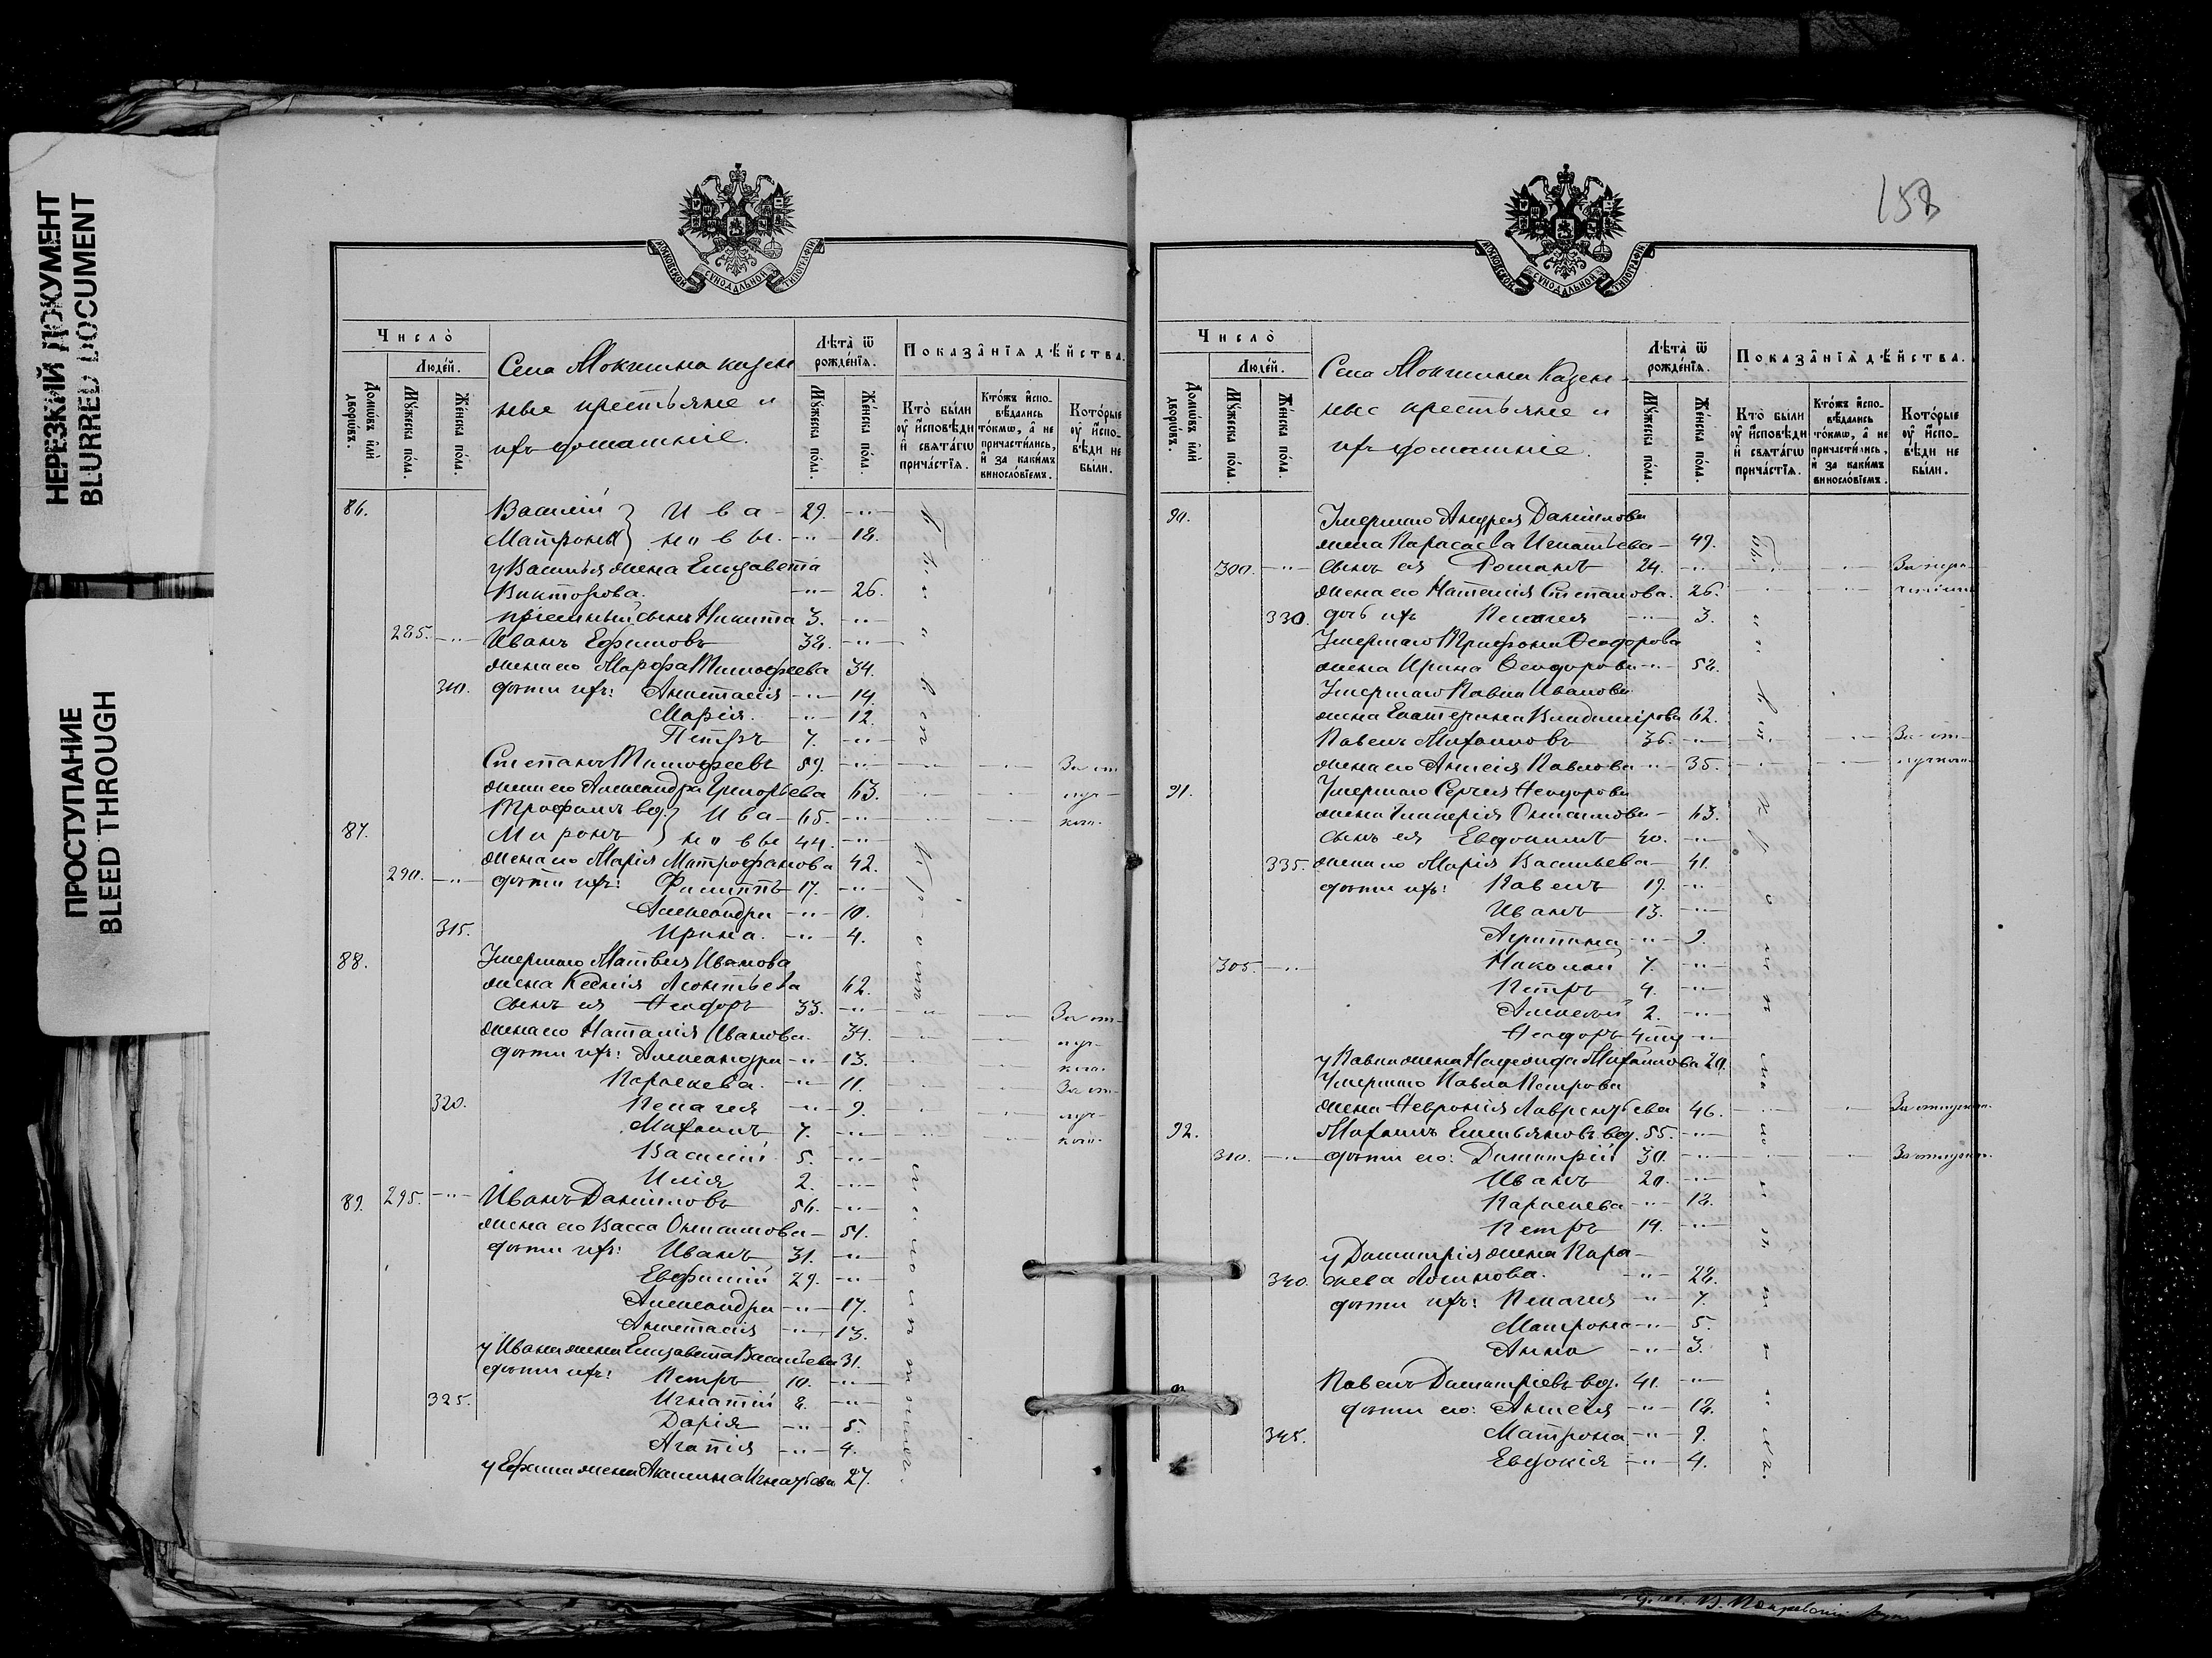 НЕРЕЗКИЙ ДОКУМЕНТ
BLURRED DOCUMENT
ПРОСТУПАНИЕ
BLEED THROUGH
МОСКОВСКОЙ СѴНОДАЛЬНОЙ ТИПОГРАФІИ
Число̀
Домѡ́въ и҆лѝ дворѡ́въ.
Люде́й.
Мꙋ́жеска по́ла.
Же́нска по́ла.
Села Мокшина казен
ные крестьяне и
ихъ домашніе.
Лѣта̀ ѿ рожде́нїѧ.
Мꙋ́жеска по́ла.
Же́нска по́ла.
Показа́нїѧ дѣ́йства.
Кто̀ бы́ли оу҆ и҆сповѣ́ди и҆ свѧта́гѡ прича́стїѧ.
Кто́жъ и҆спо-вѣ́дались то́кмѡ, а҆ не причасти́лись, и҆ за каки́мъ виносло́вїемъ.
Кото́рые оу҆ и҆спо-вѣ́ди не бы́ли.
86. Василій } Ива- 29. -"-
Матрона } новы. -"- 18.
у Василья жена Елизавета
Викторова. -"- 26.
пріемный сынъ Никита 3. -"-
285. -"- Иванъ Ефимовъ 38. -"-
жена его Марфа Тимофеева 34.
310. дѣти ихъ: Анастасія -"- 14.
Марія. -"- 12.
Петръ 7. -"-
Степанъ Тимофеевъ 59. -"- -"- -"- За от
жена его Александра Григорьева 63. -"- -"- луч-
Трофимъ вд. } Ива- 65. -"- -"- -"- кой.
87. Миронъ } новы 44. -"-
жена его Марія Митрофанова 42.
290. -"- дѣти ихъ: Филиппъ 17. -"-
Александра -"- 10.
315. Ирина. -"- 4.
88. Умершаго Матвея Иванова
жена Ксенія Леонтьева 62.
сынъ ея Ѳеодоръ 33. -"- -"- -"- За от-
жена его Наталія Иванова. 34. -"- -"- луч-
дѣти ихъ: Александра -"- 13. -"- -"- кой.
Параскева. -"- 11. -"- -"- За от-
320. Пелагея -"- 9. -"- -"- луч-
Михаилъ 7. -"- -"- -"- кой.
Василій 5. -"-
Илія 2. -"-
89. 295. -"- Иванъ Даниловъ 56. -"-
жена его Васса Онисимова- 51.
дѣти ихъ: Иванъ 31. -"-
Евфимій 29. -"-
Александра -"- 17.
Анастасія -"- 13.
у Ивана жена Елизавета Васильева 31.
дѣти ихъ: Петръ 10. -"-
325. Игнатій 8. -"-
Дарія -"- 5.
Агапія -"- 4.
у Ефима жена Акилина Игнатьева 27.
158
МОСКОВСКОЙ СѴНОДАЛЬНОЙ ТИПОГРАФІИ
Число̀
Домѡ́въ и҆лѝ дворѡ́въ.
Люде́й.
Мꙋ́жеска по́ла.
Же́нска по́ла.
Села Мокшина Казен-
ные крестьяне и
ихъ домашніе.
Лѣта̀ ѿ рожде́нїѧ.
Мꙋ́жеска по́ла.
Же́нска по́ла.
Показа́нїѧ дѣ́йства.
Кто̀ бы́ли оу҆ и҆сповѣ́ди и҆ свѧта́гѡ прича́стїѧ.
Кто́жъ и҆спо-вѣ́дались то́кмѡ, а҆ не причасти́лись, и҆ за каки́мъ виносло́вїемъ.
Кото́рые оу҆ и҆спо-вѣ́ди не бы́ли.
90. Умершаго Андрея Данилова
жена Параскева Игнатьева- 49.
300. -"- сынъ ея Романъ 24. -"- -"- -"-
жена его Наталія Степанова. 26. -"- -"-
330. дочь ихъ Пелагея -"- 3.
Умершаго Трифона Ѳеодорова
жена Ирина Ѳеодорова -"- 58.
Умершаго Павла Иванова
жена Екатерина Владимірова 62.
Павелъ Михаиловъ 36. -"- -"- -"- За от-
жена его Анисія Павлова -"- 35. -"- -"- лучкой.
91. Умершаго Сергея Ѳеодорова
жена Гликерія Онисимова- 63.
сынъ ея Евдокимъ 40. -"-
335. жена его Марія Васильева- 41.
дѣти ихъ: Павелъ 19. -"-
Иванъ 13. -"-
Агрипина -"- 9.
305. -"- Николай 7. -"-
Петръ 4. -"-
Алексѣй 2. -"-
Ѳеодоръ -"-
у Павла жена Михаилова 20.
Умершаго Павла Петрова
жена Февронія Лаврентьева 46. -"- -"- За отлучкой.
92. Михаилъ Емельяновъ вд. 55. -"-
310. -"- дѣти его: Димитрій 30. -"- -"- -"- За отлучкой.
Иванъ 20. -"-
Параскева -"- 18.
Петръ 14. -"-
у Димитрія жена Пара-
340. скева Логинова. -"- 28.
дѣти ихъ: Пелагея -"- 7.
Матрона -"- 5.
Анна -"- 3.
Павелъ Димитріевъ вд. 41. -"-
дѣти его: Анисія -"- 18.
345. Матрона -"- 9.
Евдокія -"- 4.